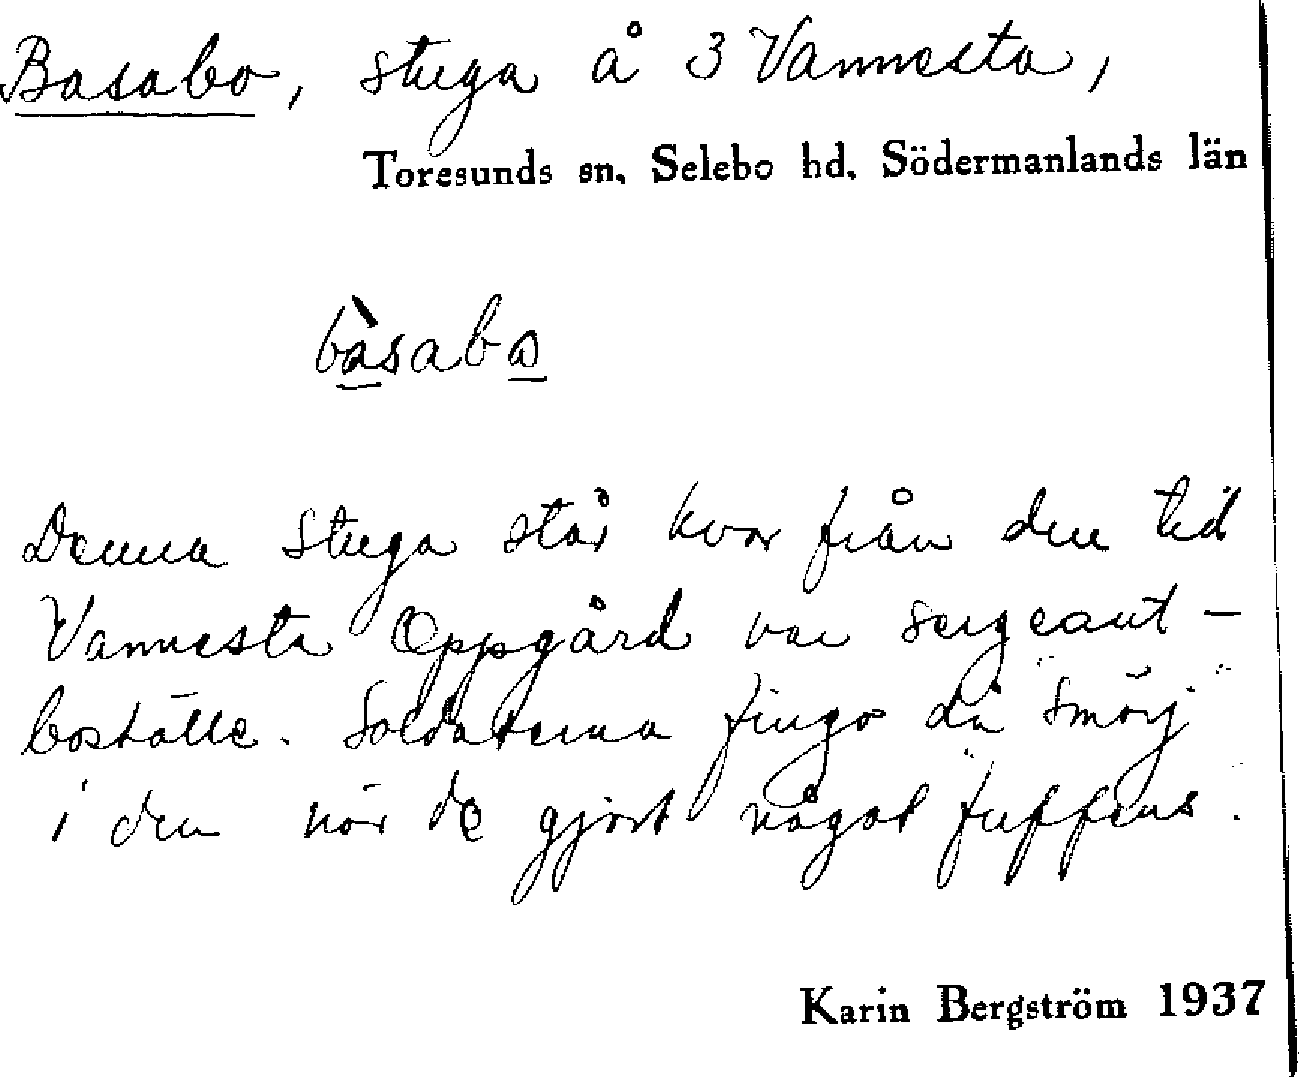 Basabo, stuga å 3 Vannesta,
Toresunds sn. Selebo hd. Södermanlands län
bàsabo
Denna stuga står kvar från den tid
Vannesta Oppgård var sergeant-
boställe. Soldaterna fingo då "smörj"
i den när de gjort något "fuffens".
Karin Bergström 1937